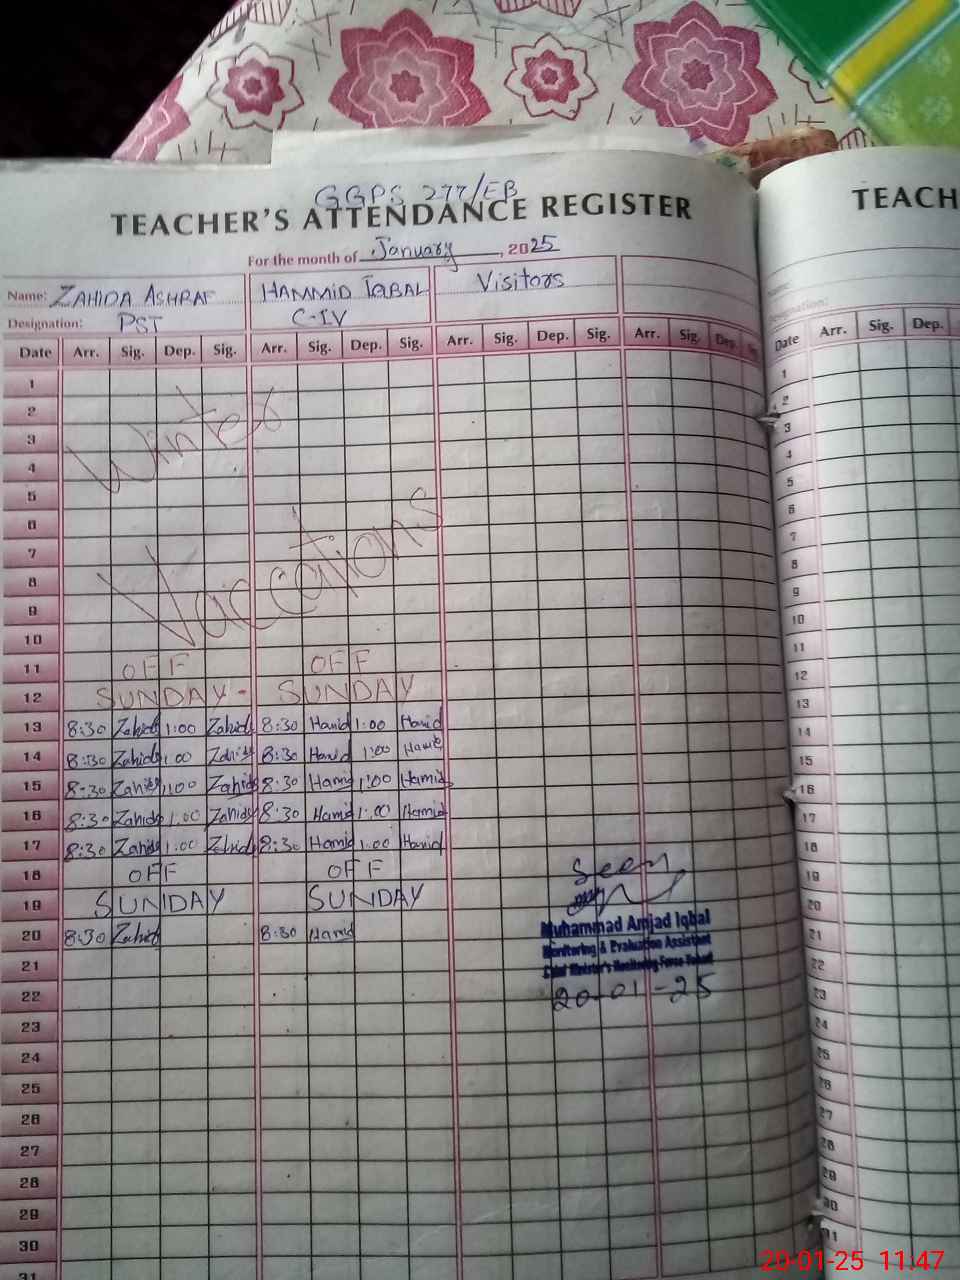 GGPS 277/EB
TEACHER'S ATTENDANCE REGISTER
For the month of January, 2025
Name: ZAHIDA ASHRAF HAMMID IQBAL Visitors
Designation: PST C-IV
Date Arr. Sig. Dep. Sig. Arr. Sig. Dep. Sig. Arr. Sig. Dep. Sig. Arr. Sig. Dep.
1
2
3
4
5
6
7
8
9
10
Winter
Vaccations
11 OFF OFF
12 SUNDAY - SUNDAY
13 8:30 Zahida 1:00 Zahida 8:30 Hamid 1:00 Hamid
14 8:30 Zahida 1:00 Zahida 8:30 Hamid 1:00 Hamid
15 8:30 Zahida 1:00 Zahida 8:30 Hamid 1:00 Hamid
16 8:30 Zahida 1:00 Zahida 8:30 Hamid 1:00 Hamid
17 8:30 Zahida 1:00 Zahida 8:30 Hamid 1:00 Hamid
18 OFF OFF
19 SUNDAY SUNDAY
20 8:30 Zahida 8:30 Hamid
21
22
23
24
25
26
27
28
29
30
31
Seen
Muhammad Amjad Iqbal
Monitoring & Evaluation Assistant
Chief Minister's Monitoring Force
20-01-25
TEACH
Designation:
Date Arr. Sig. Dep.
1
2
3
4
5
6
7
8
9
10
11
12
13
14
15
16
17
18
19
20
21
22
23
24
25
26
27
28
29
30
31
20-01-25 11:47